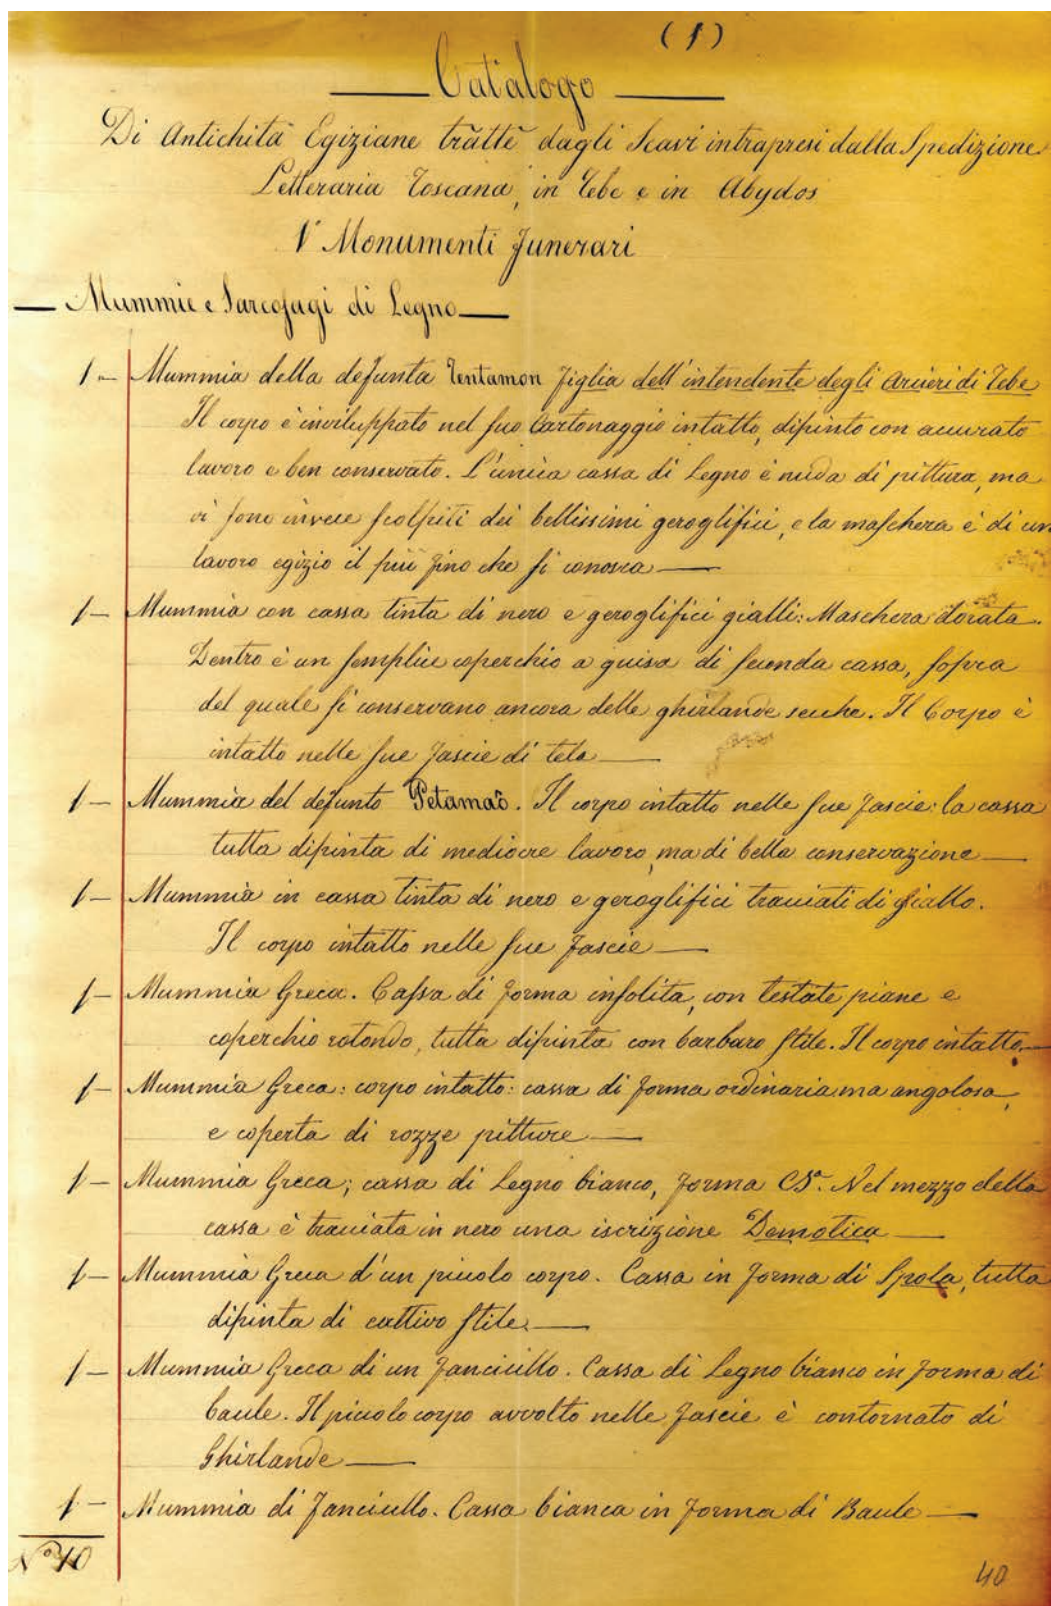 (1)
Catalogo
Di Antichità Egiziane tratte dagli Scavi intrapresi dalla Spedizione
Letteraria Toscana, in Tebe e in Abydos
Monumenti Funerari
Mummie e Sarcofagi di Legno
1 — Mummia della defunta Tentamon figlia dell'intendente degli Arcieri di Tebe
Il corpo è inviluppato nel suo Cartonaggio intatto, dipinto con accurato
lavoro e ben conservato. L'unica cassa di Legno è nuda di pittura, ma
vi sono invece scolpiti dei bellissimi geroglifici, e la maschera è di un
lavoro egizio il più fino che si conosca —
1 — Mummia con cassa tinta di nero e geroglifici gialli: Maschera dorata.
Dentro è un semplice coperchio a guisa di seconda cassa, sopra
del quale si conservano ancora delle ghirlande secche. Il Corpo è
intatto nelle sue fascie di tela —
1 — Mummia del defunto Petamaò. Il corpo intatto nelle sue fascie: la cassa
tutta dipinta di mediocre lavoro, ma di bella conservazione —
1 — Mummia in cassa tinta di nero e geroglifici tracciati di giallo.
Il corpo intatto nelle sue fascie —
1 — Mummia Greca. Cassa di forma insolita, con testate piane e
coperchio rotondo, tutta dipinta con barbaro stile. Il corpo intatto. —
1 — Mummia Greca: corpo intatto: cassa di forma ordinaria ma angolosa,
e coperta di rozze pitture —
1 — Mummia Greca; cassa di Legno bianco, forma Cs.ª Nel mezzo della
cassa è tracciata in nero una iscrizione Demotica —
1 — Mummia Greca d'un piccolo corpo. Cassa in forma di Spola, tutta
dipinta di cattivo stile. —
1 — Mummia Greca di un fanciullo. Cassa di Legno bianco in forma di
baule. Il piccolo corpo avvolto nelle fascie è contornato di
Ghirlande —
1 — Mummia di fanciullo. Cassa bianca in forma di Baule —
N.º 10
40